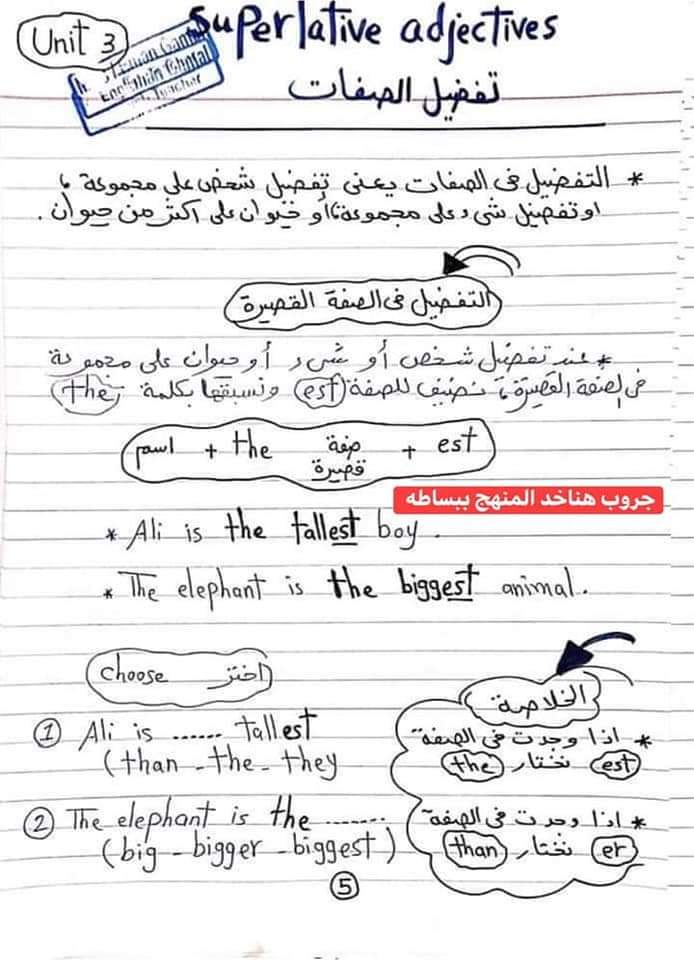 Unit 3
Superlative adjectives
تفضيل الصفات
* التفضيل فى الصفات يعنى تفضيل شخص على مجموعة ،
او تفضيل شىء على مجموعة، أو حيوان على اكثر من حيوان .
التفضيل فى الصفة القصيرة
* عند تفضيل شخص أو شىء أو حيوان على مجموعة
فى الصفة القصيرة، نضيف للصفة (est) ونسبقها بكلمة (the)
اسم + the صفة قصيرة + est
جروب هناخد المنهج ببساطه
* Ali is the tallest boy .
* The elephant is the biggest animal.
choose اختر
1 Ali is ...... tallest
(than - the - they
2 The elephant is the .......
(big - bigger - biggest)
الخلاصة
* اذا وجدت فى الصفة
est نختار the
* اذا وجدت فى الصفة
er نختار than
5